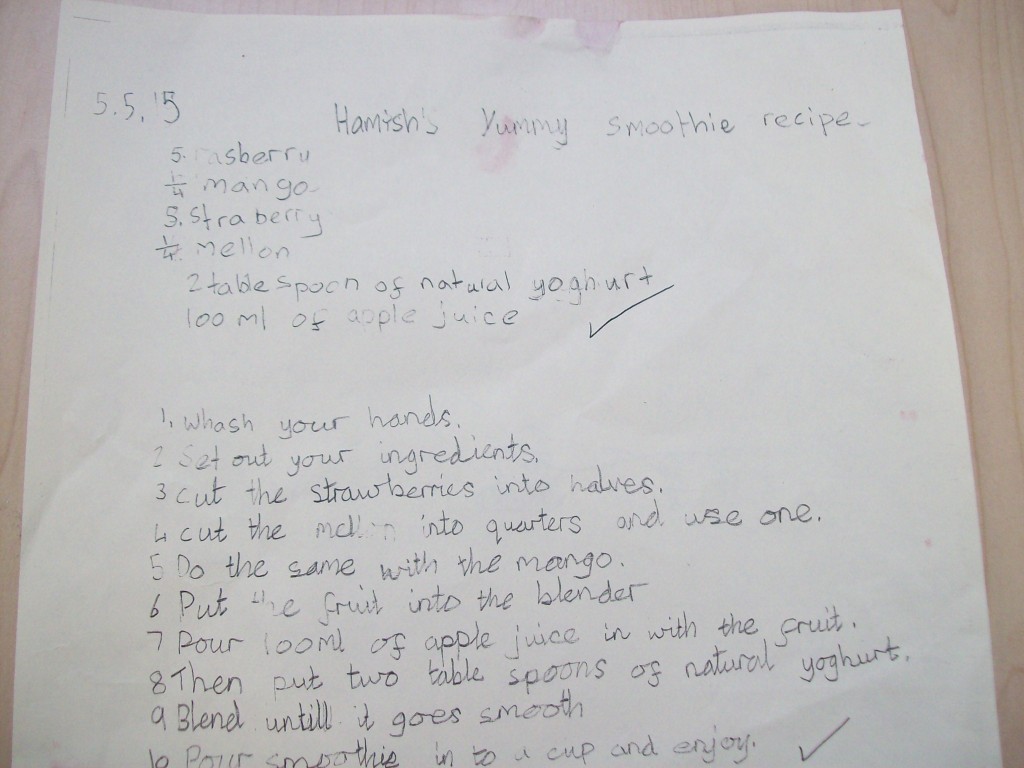 5.5.15
Hamish's Yummy smoothie recipe
5. rasberry
1/4 mango
5. straberry
1/4 mellon
2 table spoon of natural yoghurt
100 ml of apple juice
1. Whash your hands.
2 Set out your ingredients.
3 cut the strawberries into halves.
4 cut the mellon into quarters and use one.
5 Do the same with the mango.
6 Put the fruit into the blender
7 Pour 100ml of apple juice in with the fruit.
8 Then put two table spoons of natural yoghurt.
9 Blend untill it goes smooth
10 Pour smoothie in to a cup and enjoy.